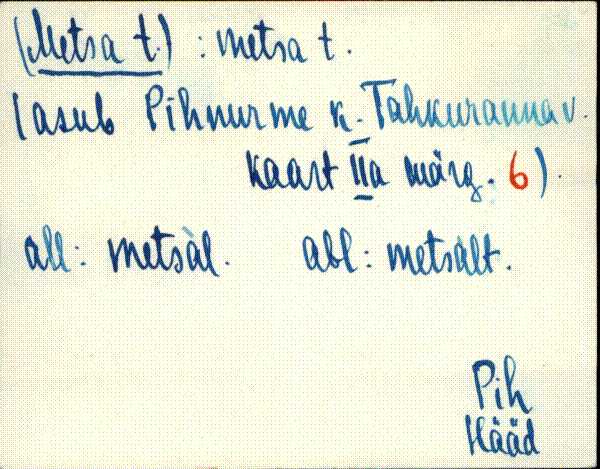 (Metsa t.) : metsa t.
(asub Pihnurme k. Tahkuranna v.
kaart IIa märg. 6).
all: metsàl. abl: metsàlt.
Pih
Hääd